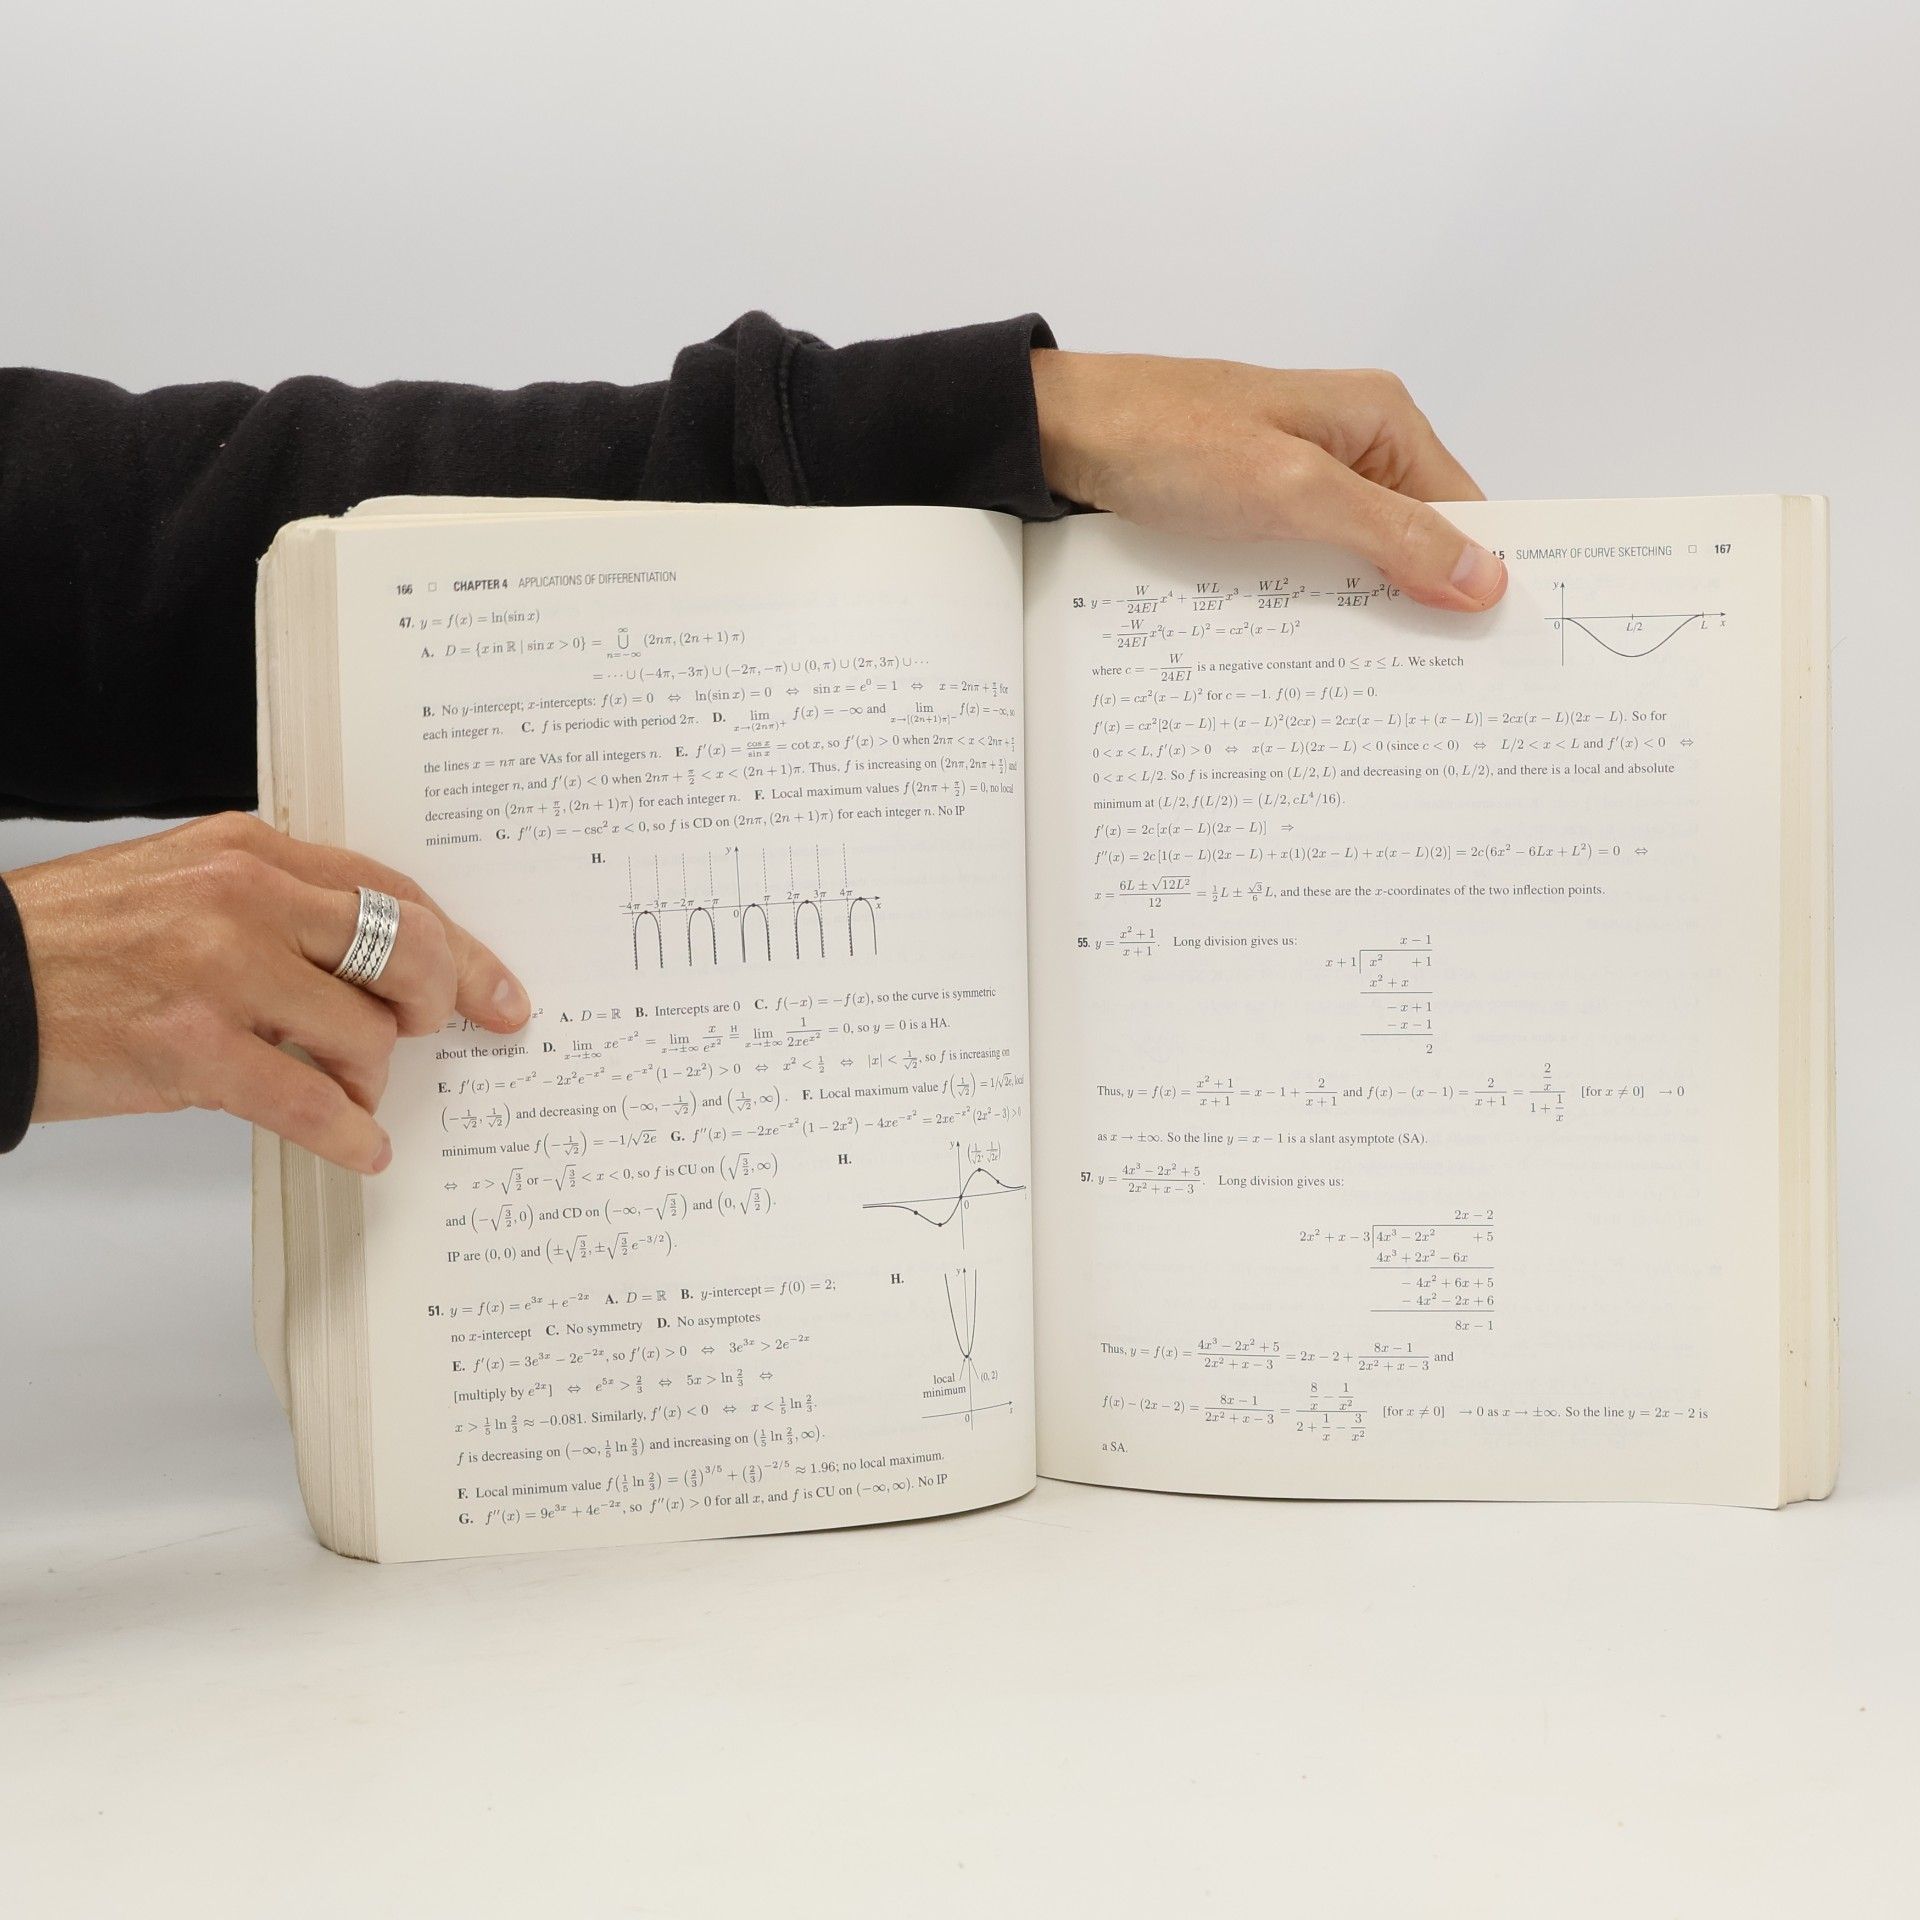 166 □ CHAPTER 4 APPLICATIONS OF DIFFERENTIATION
47. y = f(x) = ln(sin x)
A. D = {x in ℝ | sin x > 0} = ∞⋃n=−∞ (2nπ, (2n + 1) π)
= ··· ∪ (−4π, −3π) ∪ (−2π, −π) ∪ (0, π) ∪ (2π, 3π) ∪ ···
B. No y-intercept; x-intercepts: f(x) = 0 ⇔ ln(sin x) = 0 ⇔ sin x = e⁰ = 1 ⇔ x = 2nπ + π/2 for
each integer n. C. f is periodic with period 2π. D. lim x→(2nπ)+ f(x) = −∞ and lim x→[(2n+1)π]− f(x) = −∞, so
the lines x = nπ are VAs for all integers n. E. f′(x) = cos x/sin x = cot x, so f′(x) > 0 when 2nπ < x < 2nπ + π/2
for each integer n, and f′(x) < 0 when 2nπ + π/2 < x < (2n + 1)π. Thus, f is increasing on (2nπ, 2nπ + π/2) and
decreasing on (2nπ + π/2, (2n + 1)π) for each integer n. F. Local maximum values f(2nπ + π/2) = 0, no local
minimum. G. f″(x) = − csc² x < 0, so f is CD on (2nπ, (2n + 1)π) for each integer n. No IP
H.
y
−4π −3π −2π −π 0 π 2π 3π 4π x
= f(
x² A. D = ℝ B. Intercepts are 0 C. f(−x) = −f(x), so the curve is symmetric
about the origin. D. lim x→±∞ xe^−x² = lim x→±∞ x/e^x² H= lim x→±∞ 1/2xe^x² = 0, so y = 0 is a HA.
E. f′(x) = e^−x² − 2x²e^−x² = e^−x² (1 − 2x²) > 0 ⇔ x² < 1/2 ⇔ |x| < 1/√2, so f is increasing on
(−1/√2, 1/√2) and decreasing on (−∞, −1/√2) and (1/√2, ∞). F. Local maximum value f(1/√2) = 1/√2e, local
minimum value f(−1/√2) = −1/√2e G. f″(x) = −2xe^−x² (1 − 2x²) − 4xe^−x² = 2xe^−x² (2x² − 3) > 0
⇔ x > √3/2 or −√3/2 < x < 0, so f is CU on (√3/2, ∞)
and (−√3/2, 0) and CD on (−∞, −√3/2) and (0, √3/2).
IP are (0, 0) and (±√3/2, ±√3/2 e^−3/2).
H.
y
(1/√2, 1/√2e)
0
51. y = f(x) = e^3x + e^−2x A. D = ℝ B. y-intercept = f(0) = 2;
no x-intercept C. No symmetry D. No asymptotes
E. f′(x) = 3e^3x − 2e^−2x, so f′(x) > 0 ⇔ 3e^3x > 2e^−2x
[multiply by e^2x] ⇔ e^5x > 2/3 ⇔ 5x > ln 2/3 ⇔
x > 1/5 ln 2/3 ≈ −0.081. Similarly, f′(x) < 0 ⇔ x < 1/5 ln 2/3.
f is decreasing on (−∞, 1/5 ln 2/3) and increasing on (1/5 ln 2/3, ∞).
F. Local minimum value f(1/5 ln 2/3) = (2/3)^3/5 + (2/3)^−2/5 ≈ 1.96; no local maximum.
G. f″(x) = 9e^3x + 4e^−2x, so f″(x) > 0 for all x, and f is CU on (−∞, ∞). No IP
H.
y
local
minimum
(0, 2)
0
5 SUMMARY OF CURVE SKETCHING □ 167
53. y = −W/24EI x⁴ + WL/12EI x³ − WL²/24EI x² = −W/24EI x² (x
= −W/24EI x²(x − L)² = cx²(x − L)²
where c = −W/24EI is a negative constant and 0 ≤ x ≤ L. We sketch
f(x) = cx²(x − L)² for c = −1. f(0) = f(L) = 0.
f′(x) = cx²[2(x − L)] + (x − L)²(2cx) = 2cx(x − L) [x + (x − L)] = 2cx(x − L)(2x − L). So for
0 < x < L, f′(x) > 0 ⇔ x(x − L)(2x − L) < 0 (since c < 0) ⇔ L/2 < x < L and f′(x) < 0 ⇔
0 < x < L/2. So f is increasing on (L/2, L) and decreasing on (0, L/2), and there is a local and absolute
minimum at (L/2, f(L/2)) = (L/2, cL⁴/16).
f′(x) = 2c [x(x − L)(2x − L)] ⇒
f″(x) = 2c [1(x − L)(2x − L) + x(1)(2x − L) + x(x − L)(2)] = 2c(6x² − 6Lx + L²) = 0 ⇔
x = 6L ± √12L²/12 = 1/2 L ± √3/6 L, and these are the x-coordinates of the two inflection points.
y
0 L/2 L x
55. y = x² + 1/x + 1. Long division gives us:
x − 1
x + 1 x² + 1
x² + x
− x + 1
− x − 1
2
Thus, y = f(x) = x² + 1/x + 1 = x − 1 + 2/x + 1 and f(x) − (x − 1) = 2/x + 1 = 2/x / 1 + 1/x [for x ≠ 0] → 0
as x → ±∞. So the line y = x − 1 is a slant asymptote (SA).
57. y = 4x³ − 2x² + 5/2x² + x − 3. Long division gives us:
2x − 2
2x² + x − 3 4x³ − 2x² + 5
4x³ + 2x² − 6x
− 4x² + 6x + 5
− 4x² − 2x + 6
8x − 1
Thus, y = f(x) = 4x³ − 2x² + 5/2x² + x − 3 = 2x − 2 + 8x − 1/2x² + x − 3 and
f(x) − (2x − 2) = 8x − 1/2x² + x − 3 = 8/x − 1/x² / 2 + 1/x − 3/x² [for x ≠ 0] → 0 as x → ±∞. So the line y = 2x − 2 is
a SA.